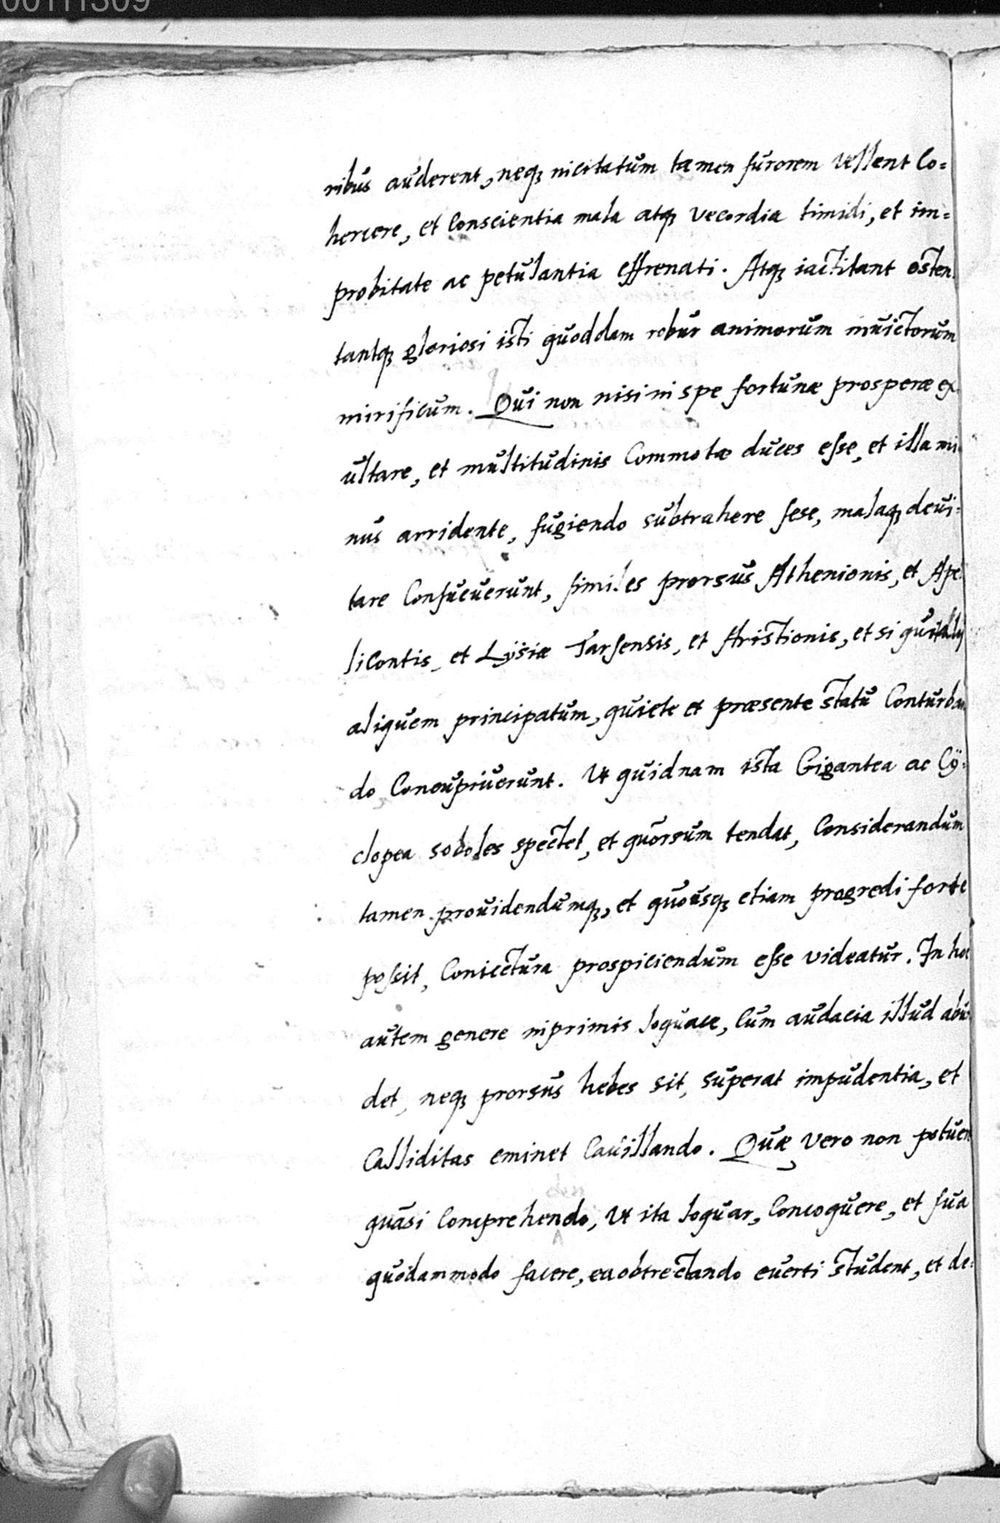 00111309
ribus auderent, neq; incitatum tamen furorem vellent co=
hercere, et conscientia mala atq; vecordia timidi, et im=
probitate ac petulantia effrenati. Atq; iactitant osten
tantq; gloriosi isti quoddam robur animorum invictorum
mirificum. Qui non nisi in spe fortunæ prosperæ ex
ultare, et multitudinis commotæ duces esse, et illa mi
nus arridente, fugiendo subtrahere sese, malaq; devi=
tare consueverunt, similes prorsus Athenionis, et Ape
licontis, et Lysiæ Tarsensis, et Aristionis, et si qui alij
aliquem principatum, quiete et præsente statu conturban
do concupiverunt. Ut quidnam ista Gigantea ac Cy=
clopea soboles spectet, et quorsum tendat, considerandum
tamen providendumq;, et quousq; etiam progredi forte
possit, coniectura prospiciendum esse videatur. In hoc
autem genere inprimis loquace, cum audacia illud abun
det, neq; prorsus hebes sit, superat impudentia, et
calliditas eminet cavillando. Quæ vero non potuer
quasi comprehendo, ut ita loquar, concoquere, et sua
quodammodo facere, ea obtrectando everti student, et de=